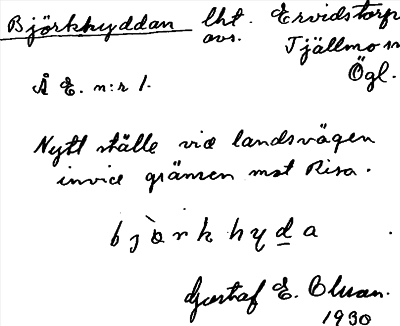 Björkhyddan lht. Ervidstorp
avs. Tjällmo sn
Ögl.
Å E. n:r 1.
Nytt ställe vid landsvägen
invid gränsen mot Risa.
bjòrkhyda
Gustaf E. Olsson.
1930